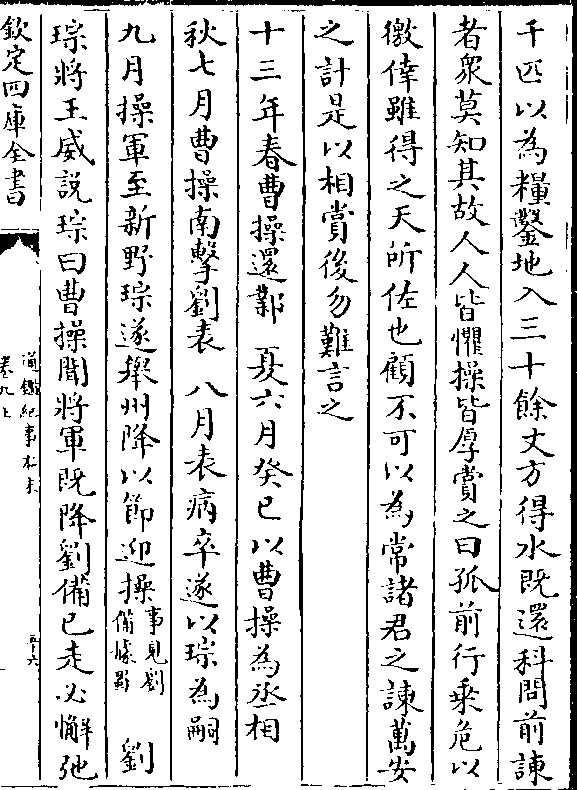 千匹以為糧鑿地入三十餘丈方得水既還科問前諫
者衆莫知其故人人皆懼操皆厚賞之曰孤前行乗危以
徼倖雖得之天所佐也顧不可以為常諸君之諫萬安
之計是以相賞後勿難言之
十三年春曹操還鄴 夏六月癸巳以曹操為丞相
秋七月曹操南擊劉表 八月表病卒遂以琮為嗣
九月操軍至新野琮遂舉州降以節迎操事見劉備據蜀 劉
琮將王威說琮曰曹操聞將軍既降劉備已走必懈弛
欽定四庫全書
通鑑紀事本末
卷九上
五十六